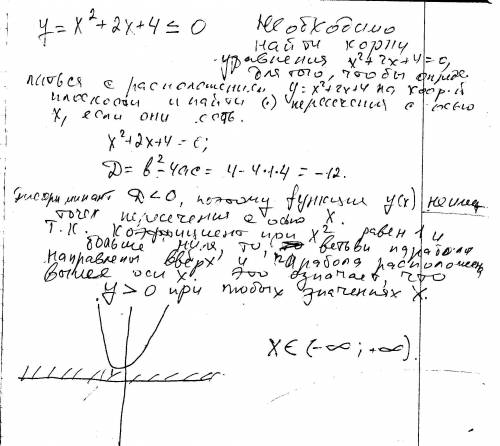 y = x² + 2x + 4 ≤ 0 Необходимо
найти корни
уравнения x² + 2x + 4 = 0,
для того, чтобы опреде
литься с расположением y = x² + 2x + 4 на коор. й
плоскости и найти () пересечения с осью
x, если они есть.
x² + 2x + 4 = 0;
D = b² - 4ac = 4 - 4·1·4 = -12.
Дискриминант D < 0, поэтому функция y(x) не имеет
точек пересечения с осью X.
Т.К. коэффициент при x² равен 1 и
больше нуля, то ветви параболы
направлены вверх и парабола расположена
выше оси X. Это означает, что
y > 0 при любых значениях X.
X ∈ (-∞; +∞).